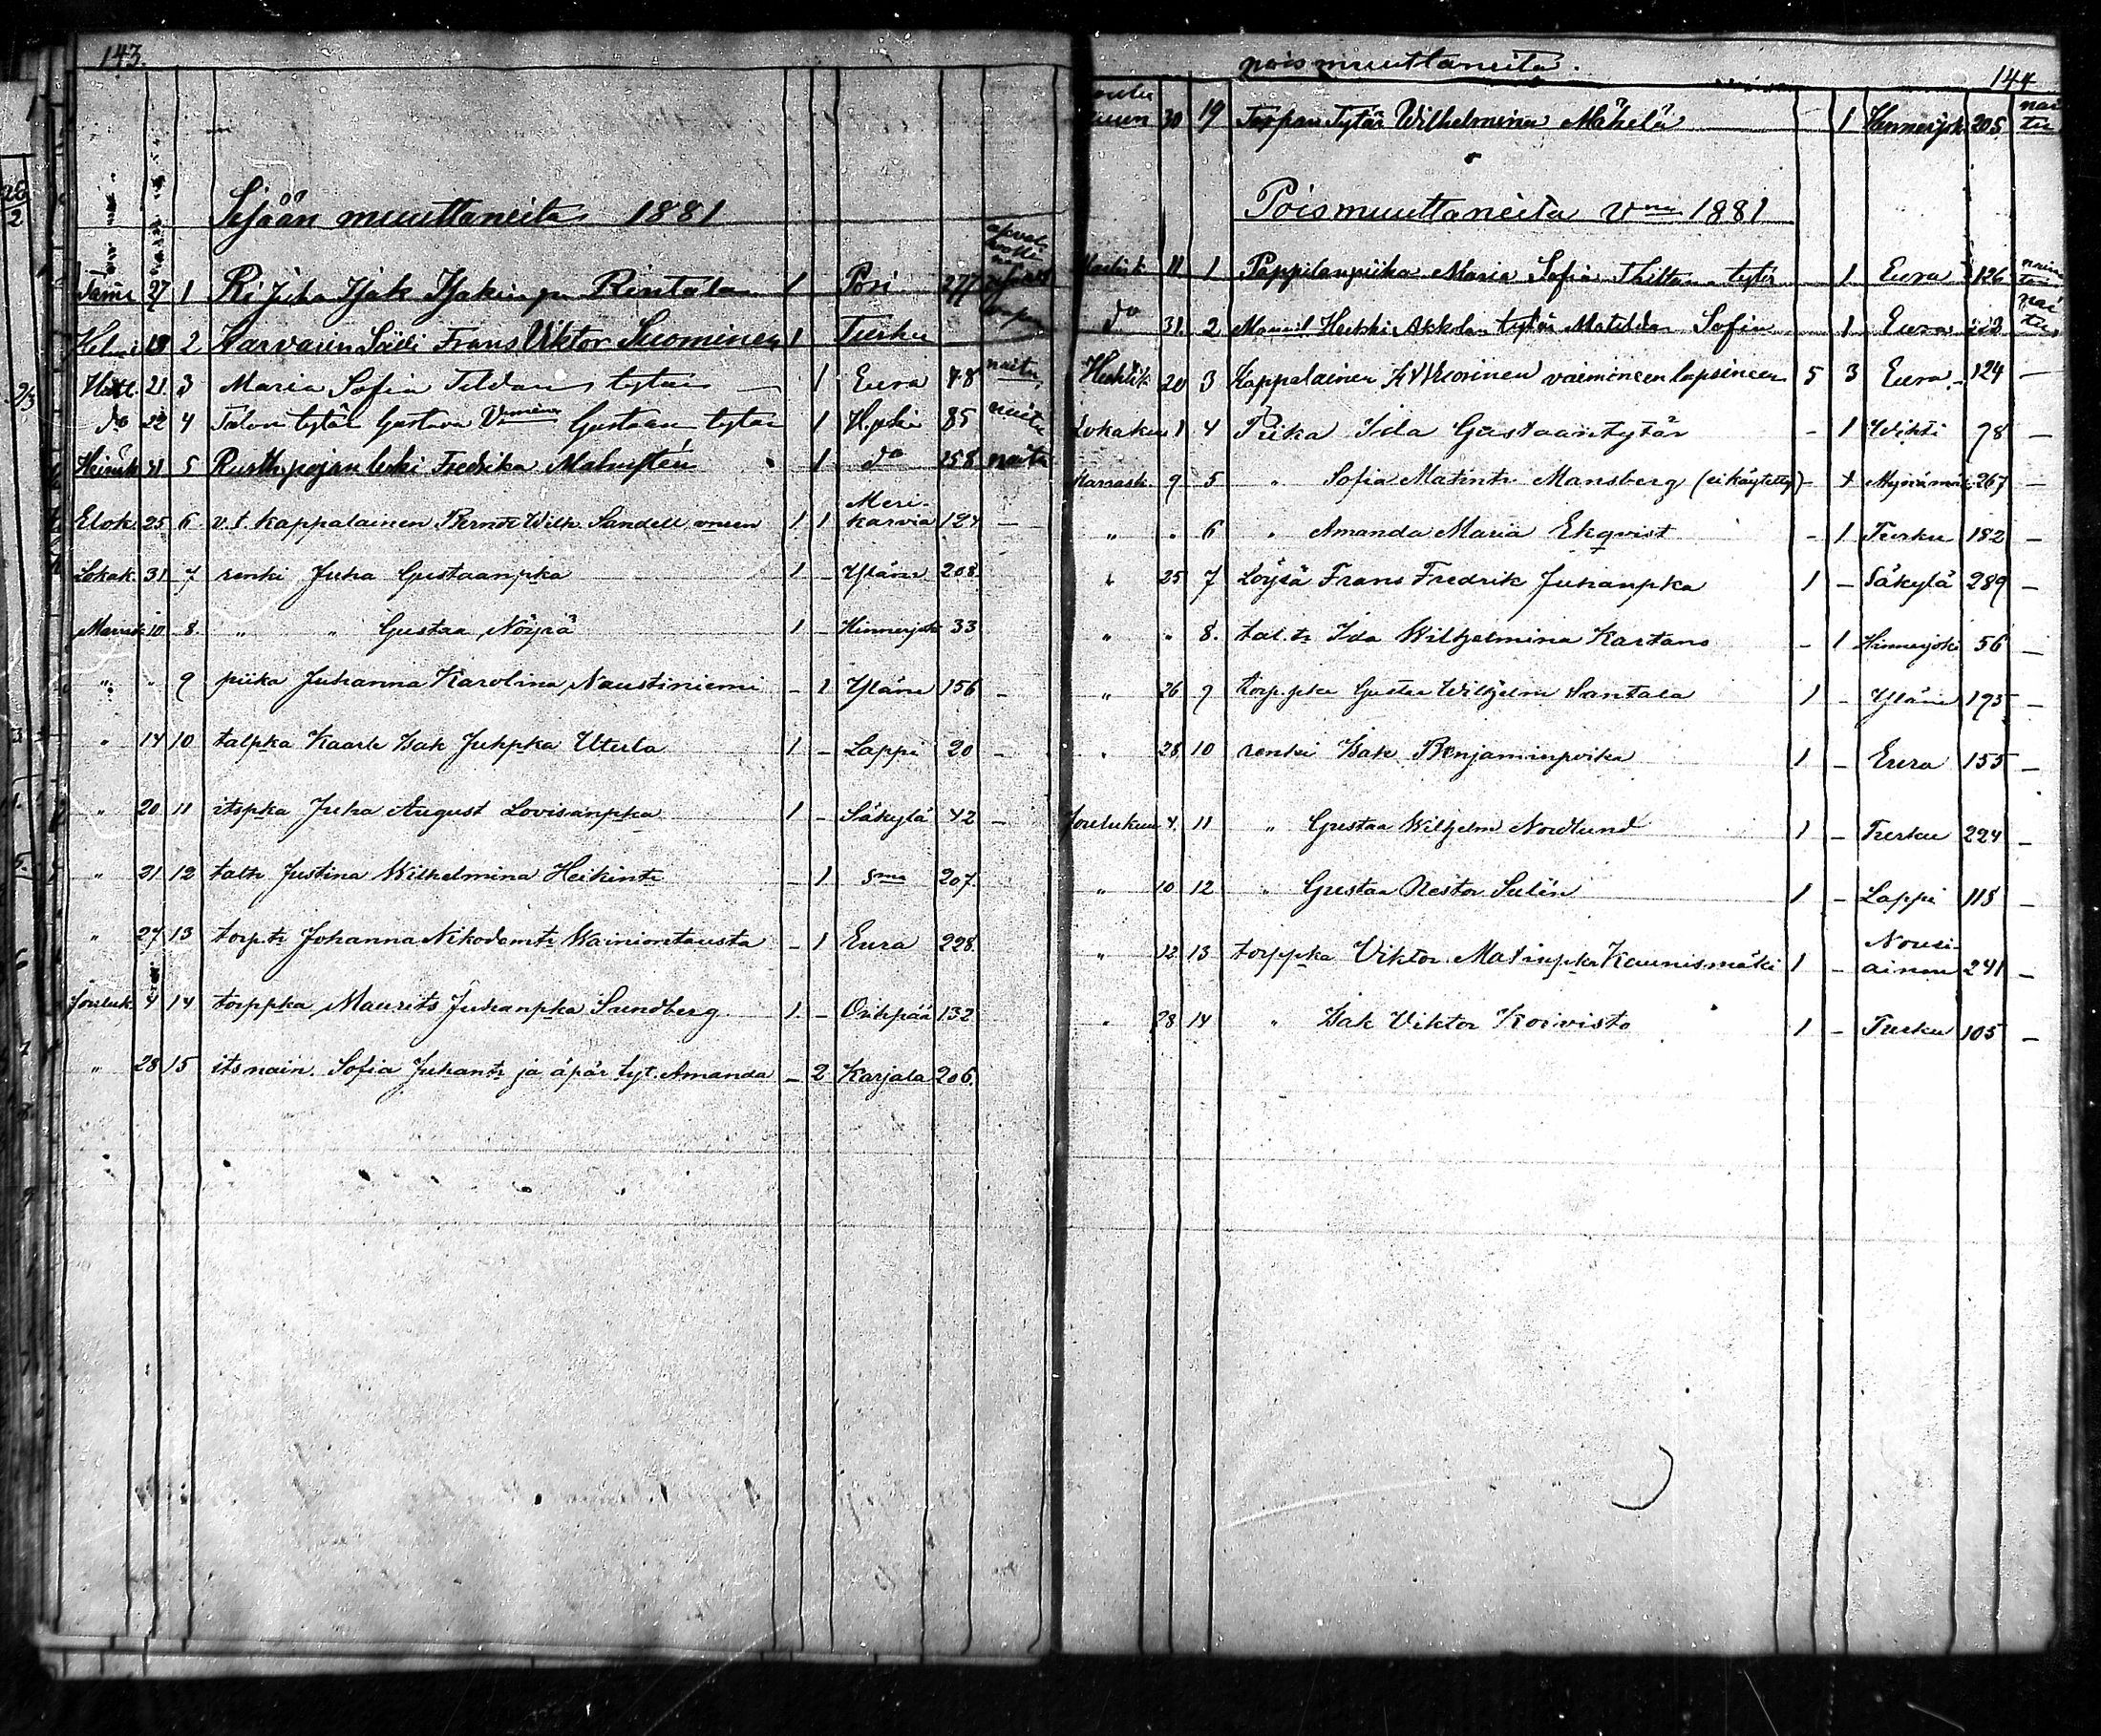 143.
Sisään muuttaneita 1881
27 1 Ri Juha Isak Isakin p. Rintala 1 Pori 277
Helmi 18 2 Karvarin Sälli Frans Viktor Suominen 1 Turku
21 3 Maria Sofia tytär 1 Eura 78 naitu
do 22 4 Talon tytär Gustava Gustaan tytär 1 Hjoki 85 naitu
Heinäk 5 leski Fredrika 1 do 158 naitu
Elok. 25 6 v.t. kappalainen Wilh. Sandell vneen 1 1 Merikarvia 124 —
Lokak. 31 7 renki Juha Gustaanpka 1 – Yläne 208
Marrask 10 8. " " Gustaa Nöyrä 1 – Hinnerjoki 33
" " 9 piika Juhanna Karolina Naustiniemi – 1 Yläne 156 –
" 14 10 talpka Kaarle Isak Juhpka Uterla 1 – Lappi 20 –
" 20 11 itspka Juha August Lovisanpka 1 – Säkylä 42 –
" 21 12 taltr Justina Wilhelmina Heikintr – 1 sma 207.
" 27 13 torp.tr Johanna Nikodemtr Wainiontausta – 1 Eura 228.
Jouluk. 4 14 torppka Maurits Juhanpka Sundberg 1. – Orihpää 132
" 28 15 itsnain. Sofia Juhantr ja äpär. tyt. Amanda – 2 Karjala 206.
poismuuttaneita.
144
30 19 Torpan Tytär Wilhelmina Mäkelä 1 Hinnerjok. 205 naitu
Poismuuttaneita Vna 1881
11 1 Pappilanpiika Maria Sofia tytär 1 Eura 126
do 31. 2 Heikki tytär Matilda Sofia 1 Eura naitu
Huhtik 20 3 Kappalainen vaimineen lapsineen 5 3 Eura 124 —
Lokakuu 1 4 Piika Ida Gustaantytär – 1 Wihti 78 —
Marrask. 9 5 " Sofia Matintr Mansberg (ei käytetty) – 1 Mynämäki 267 —
" " 6 " Amanda Maria Ekqvist – 1 Turku 182 —
" 25 7 Löysä Frans Fredrik Juhanpka 1 – Säkylä 289 —
" " 8. tal.tr Ida Wilhelmina Kartano – 1 Hinnerjoki 56 —
" 26 9 torp.pka Gustaa Wilhjelm Santala 1 – Yläne 195 —
" 28 10 renki Isak Benjaminpoika 1 – Eura 155 —
Joulukuu 4. 11 " Gustaa Wilhjelm Nordlund 1 – Turku 224 —
" 10 12 " Gustaa Nestor Sulin 1 – Lappi 118 —
" 12 13 torppka Viktor Matinpka Kaunismäki 1 – Nousiainen 241 —
" 28 14 " Isak Viktor Koivisto 1 – Turku 105 —